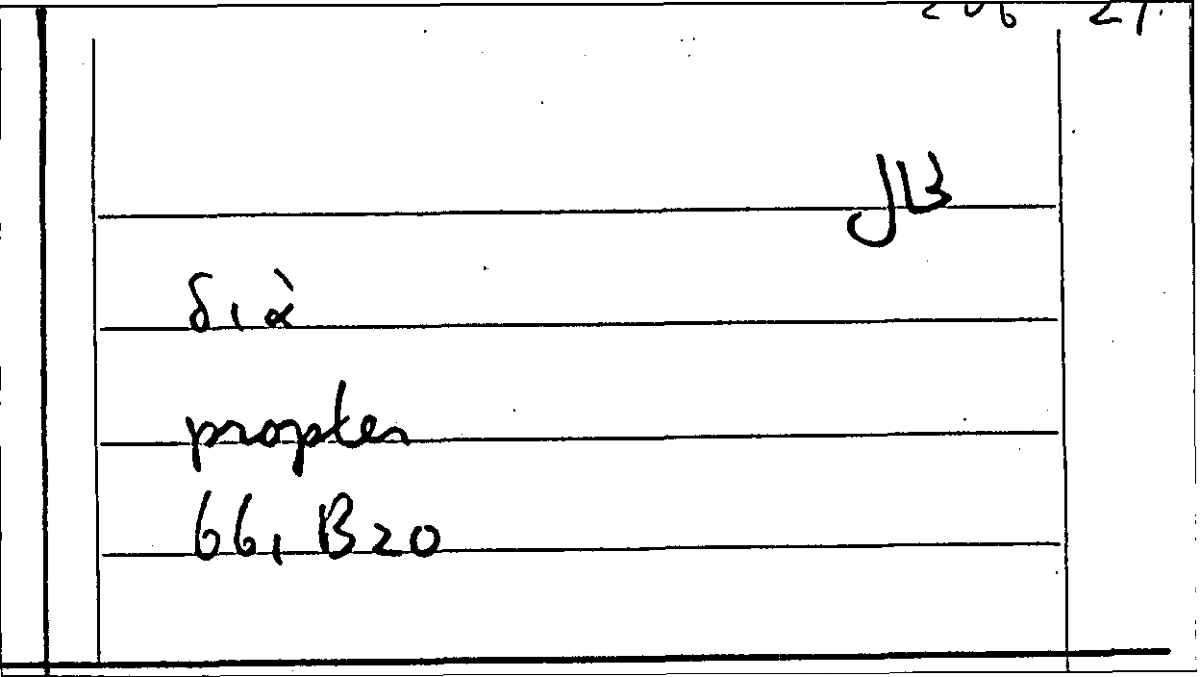 JB
διὰ
propter
66, B20